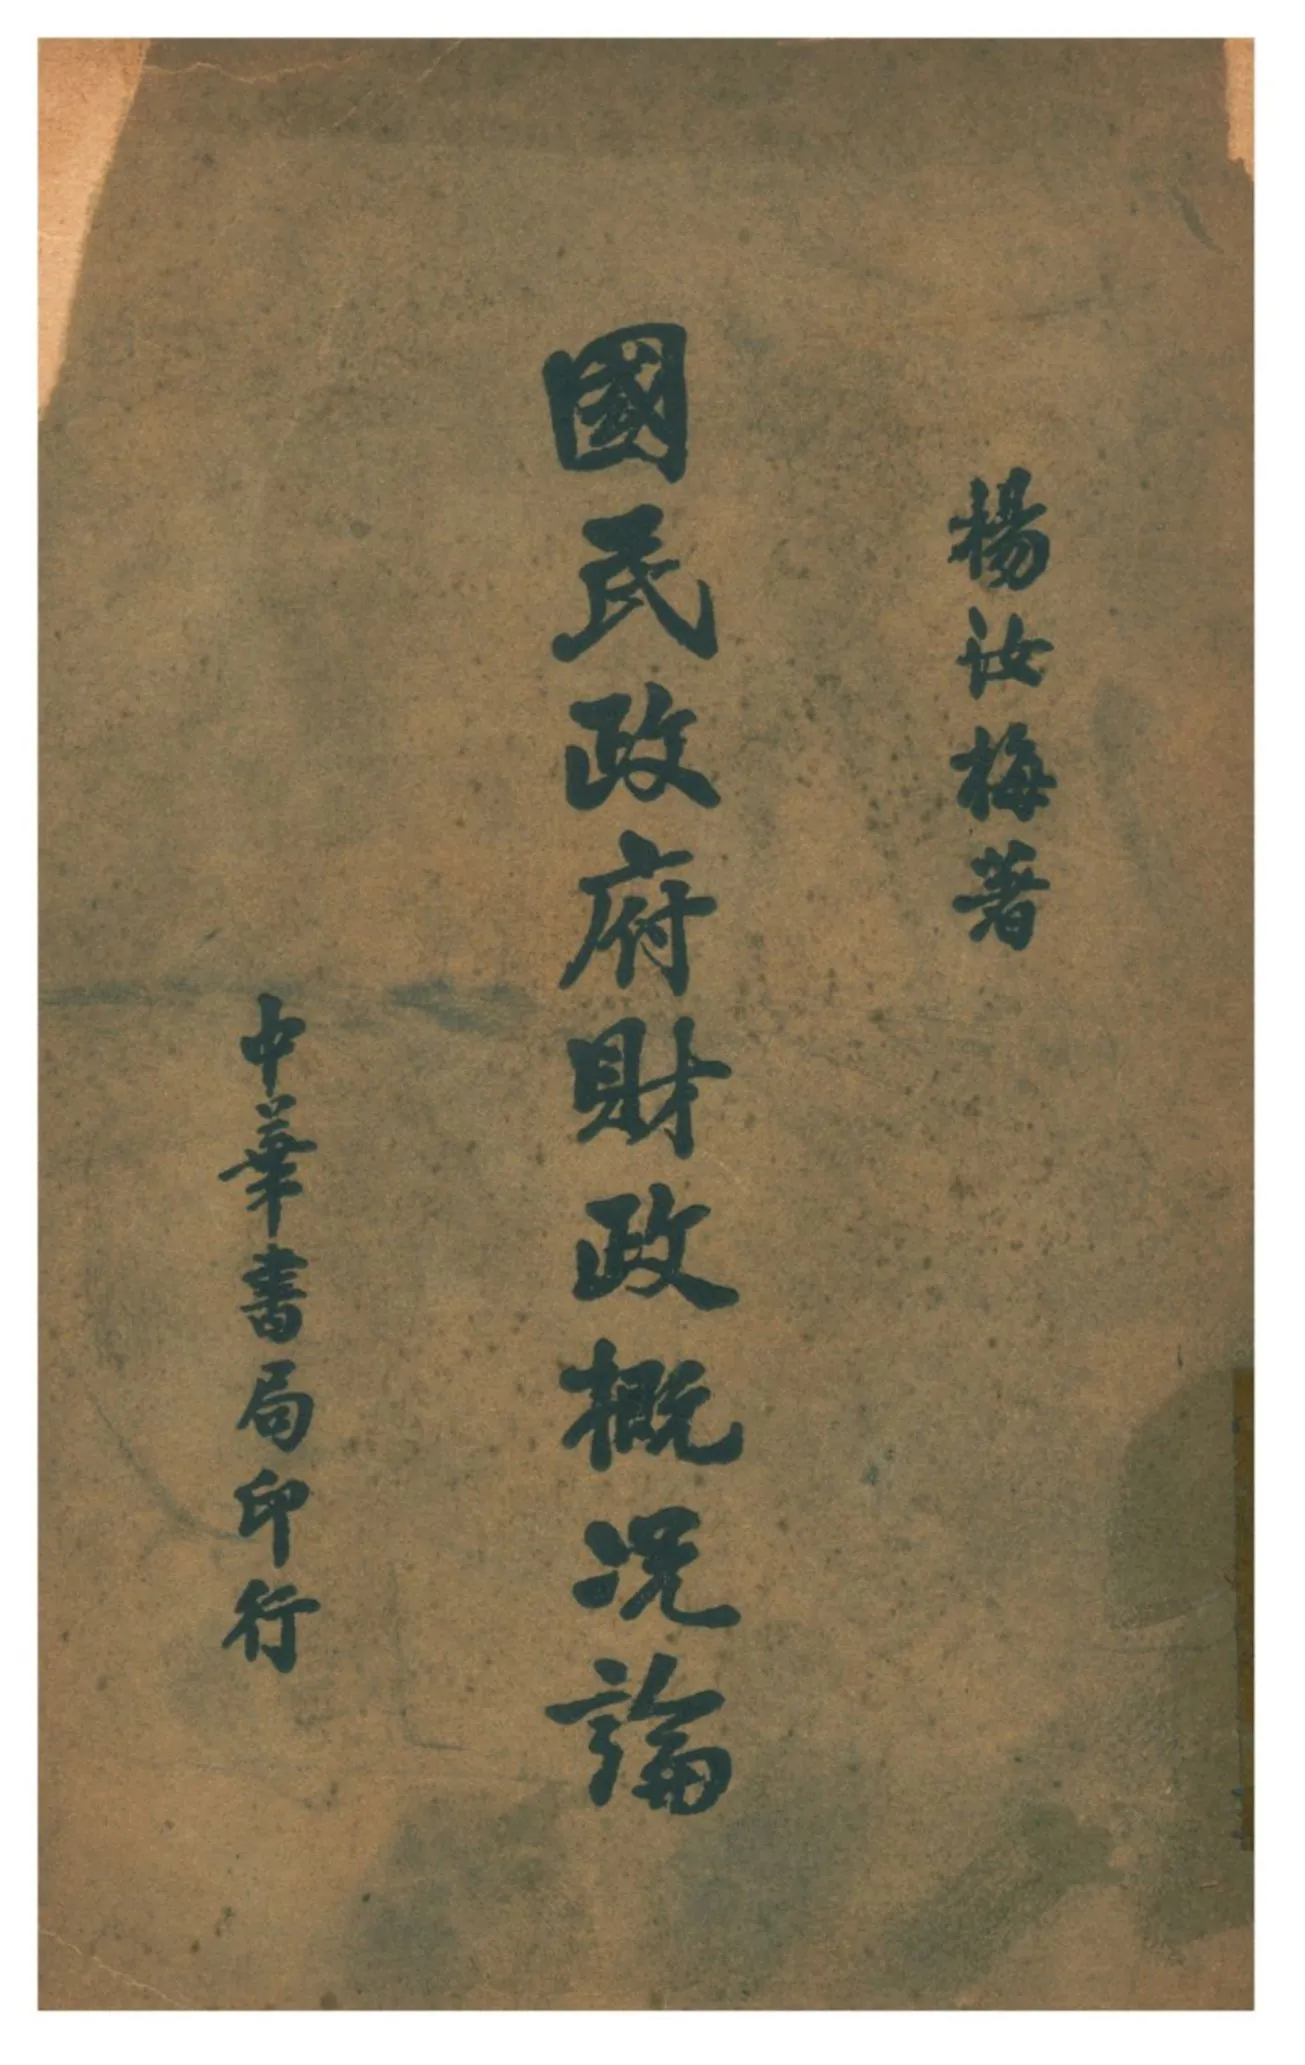 楊汝梅著
國民政府財政概況論
中華書局印行